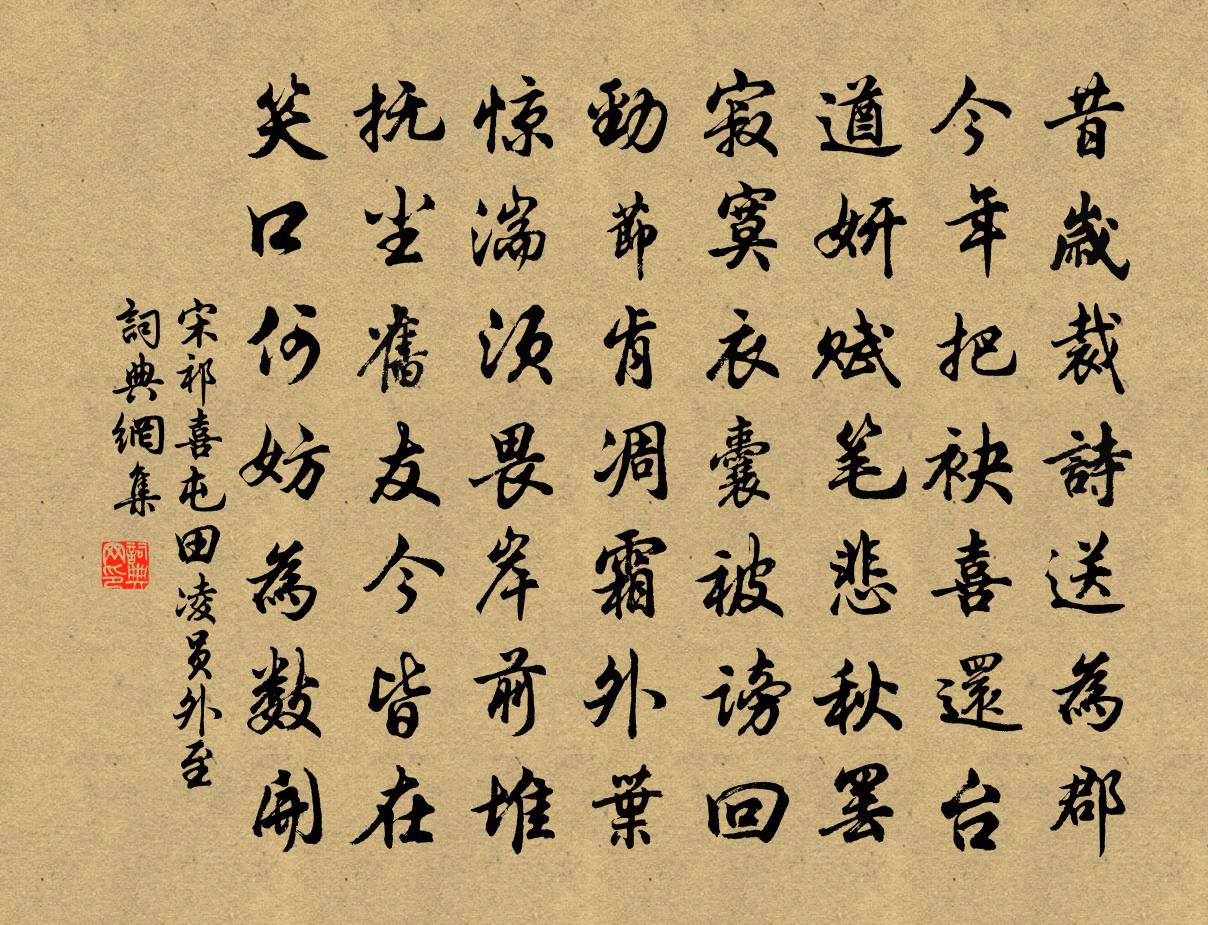 昔歲裁詩送為郡
今年把袂喜還台
遒妍赋笔悲秋罢
寂寞衣囊被谤回
勁節肯凋霜外葉
惊湍须畏岸前堆
抚尘舊友今皆在
笑口何妨為数開
宋祁喜屯田凌员外至
詞典網集
詞典网印